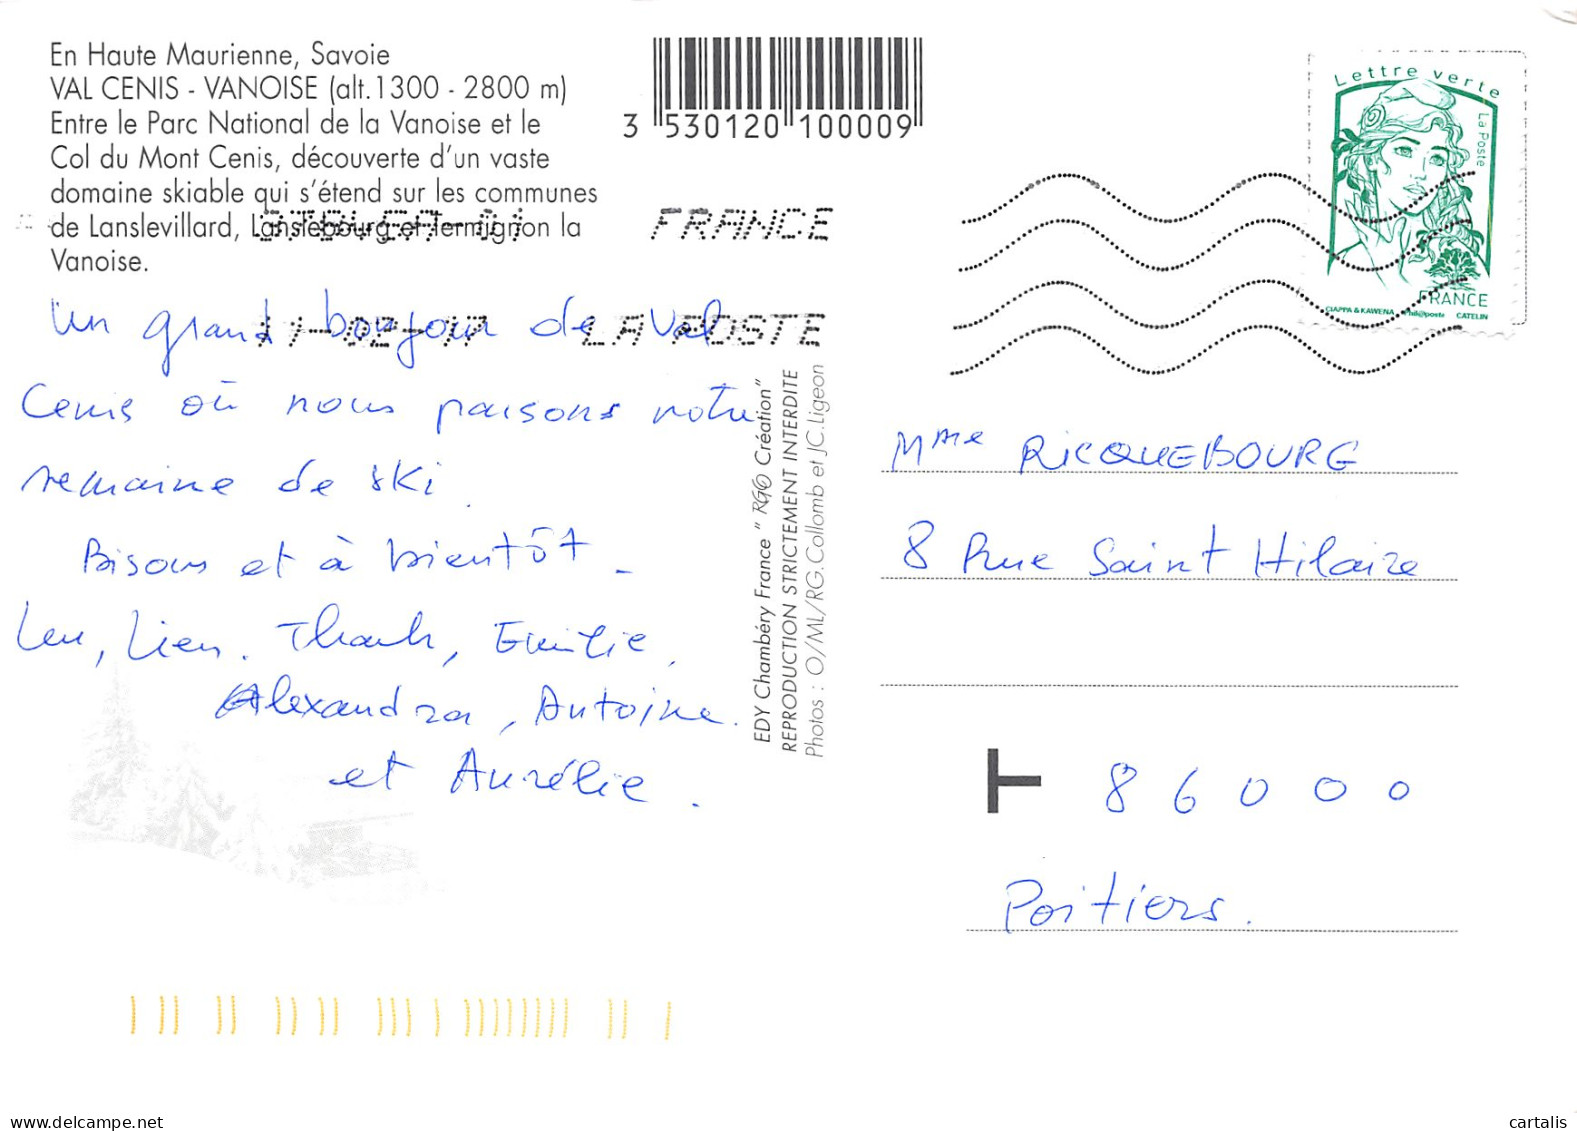 En Haute Maurienne, Savoie
VAL CENIS - VANOISE (alt.1300 - 2800 m)
Entre le Parc National de la Vanoise et le
Col du Mont Cenis, découverte d'un vaste
domaine skiable qui s'étend sur les communes
de Lanslevillard, Lanslebourg et Termignon la
Vanoise.
3 530120 100009
Lettre verte
La Poste
FRANCE
CIAPPA & KAWENA Phil@poste CATELIN
FRANCE
11-02-17 LA POSTE
Un grand bonjour de Val
Cenis où nous passons notre
semaine de ski.
Bisous et à bientôt -
Emilie,
Alexandra, Antoine.
et Aurélie.
EDY Chambéry France " RGO Création"
REPRODUCTION STRICTEMENT INTERDITE
Photos : O/ML/RG.Collomb et JC.Ligeon
Mme RICQUEBOURG
8 Rue Saint Hilaire
86000
Poitiers.
www.delcampe.net
cartalis